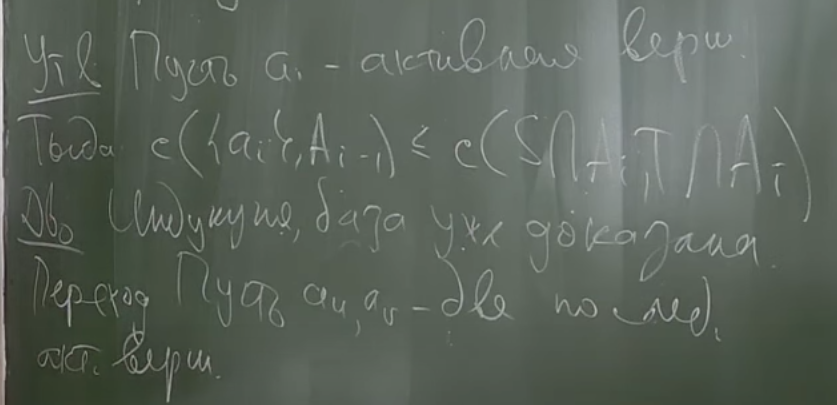 Утв Пусть aᵢ - активная верш.
Тогда c({aᵢ}, Aᵢ₋₁) ≤ c(S∩Aᵢ, T∩Aᵢ)
Дво Индукция, база уже доказана.
Переход Пусть aᵤ, aᵥ - две послед.
акт. верш.